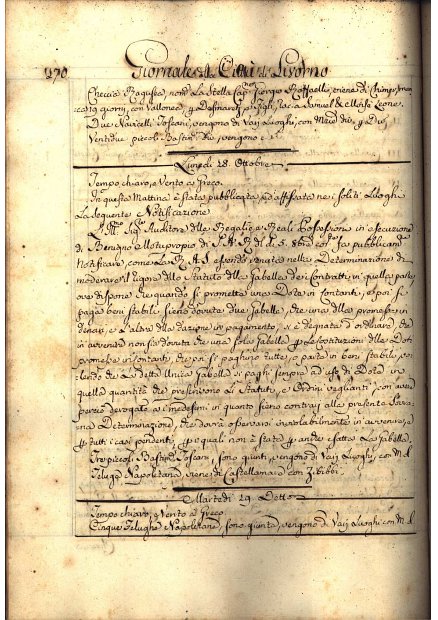 270 Giornale della Città di Livorno
Checcia Ragusea, nom.ta La Stella Cap.no Giorgio Raffaelle, viene di
giorni, con Vallonea, a Samuel de Leone.
Due Navicelli Toscani, vengono di Varij Luoghi, con M.di
Ventidue piccoli Bastim.ti vengono
Lunedì 28. Ottobre
Tempo chiaro, e Vento a Greco.
In questa Mattina è stata pubblicata, ed affissata ne i soliti Luoghi
La seguente Notificazione
L' Ill.mo Sig.re Auditore delle Regalie, e Reali Possessioni in esecuzione
di Benigno Motuproprio di S. A. R. del dì 5. fa pubblicam.te
Notificare, come La R. A. S. essendo venuta nella Determinazione di
moderare il rigore dello Statuto della Gabella dei Contratti in quella parte,
ove dispone che quando si promette una Dote in contanti, e poi si
paga beni stabili sieno dovute due Gabelle, che una della promessa in
denari, e l'altra della dazione in pagamento, si è degnata d'ordinare, che
in avvenire non sia dovuta che una sola Gabella per le Costituzioni delle Doti
promesse in contanti, che poi si paghino tutte, o parte in beni stabili, vo-
lendo che La detta Unica Gabella si paghi sempre ad uso di Dota in
quella quantità che prescrivono Li Statuti, e Ordini veglianti, con aver
perciò derogato a i medesimi in quanto sieno contrarj alla presente Sovra-
na Determinazione, che dovrà osservarsi inviolabilmente in avvenire, e
per tutti i casi pendenti, per i quali non è stata per anche esatta La Gabella.
Tre piccoli Bastim.ti Toscani, sono giunti, vengono di Varij Luoghi, con M.di
Feluga Napoletana, viene di Castellamare con Zibibbi.
Martedì 29. Detto
Tempo chiaro, e Vento a Greco
Cinque Felughe Napoletane, sono giunte, vengono di Varij Luoghi con M.di